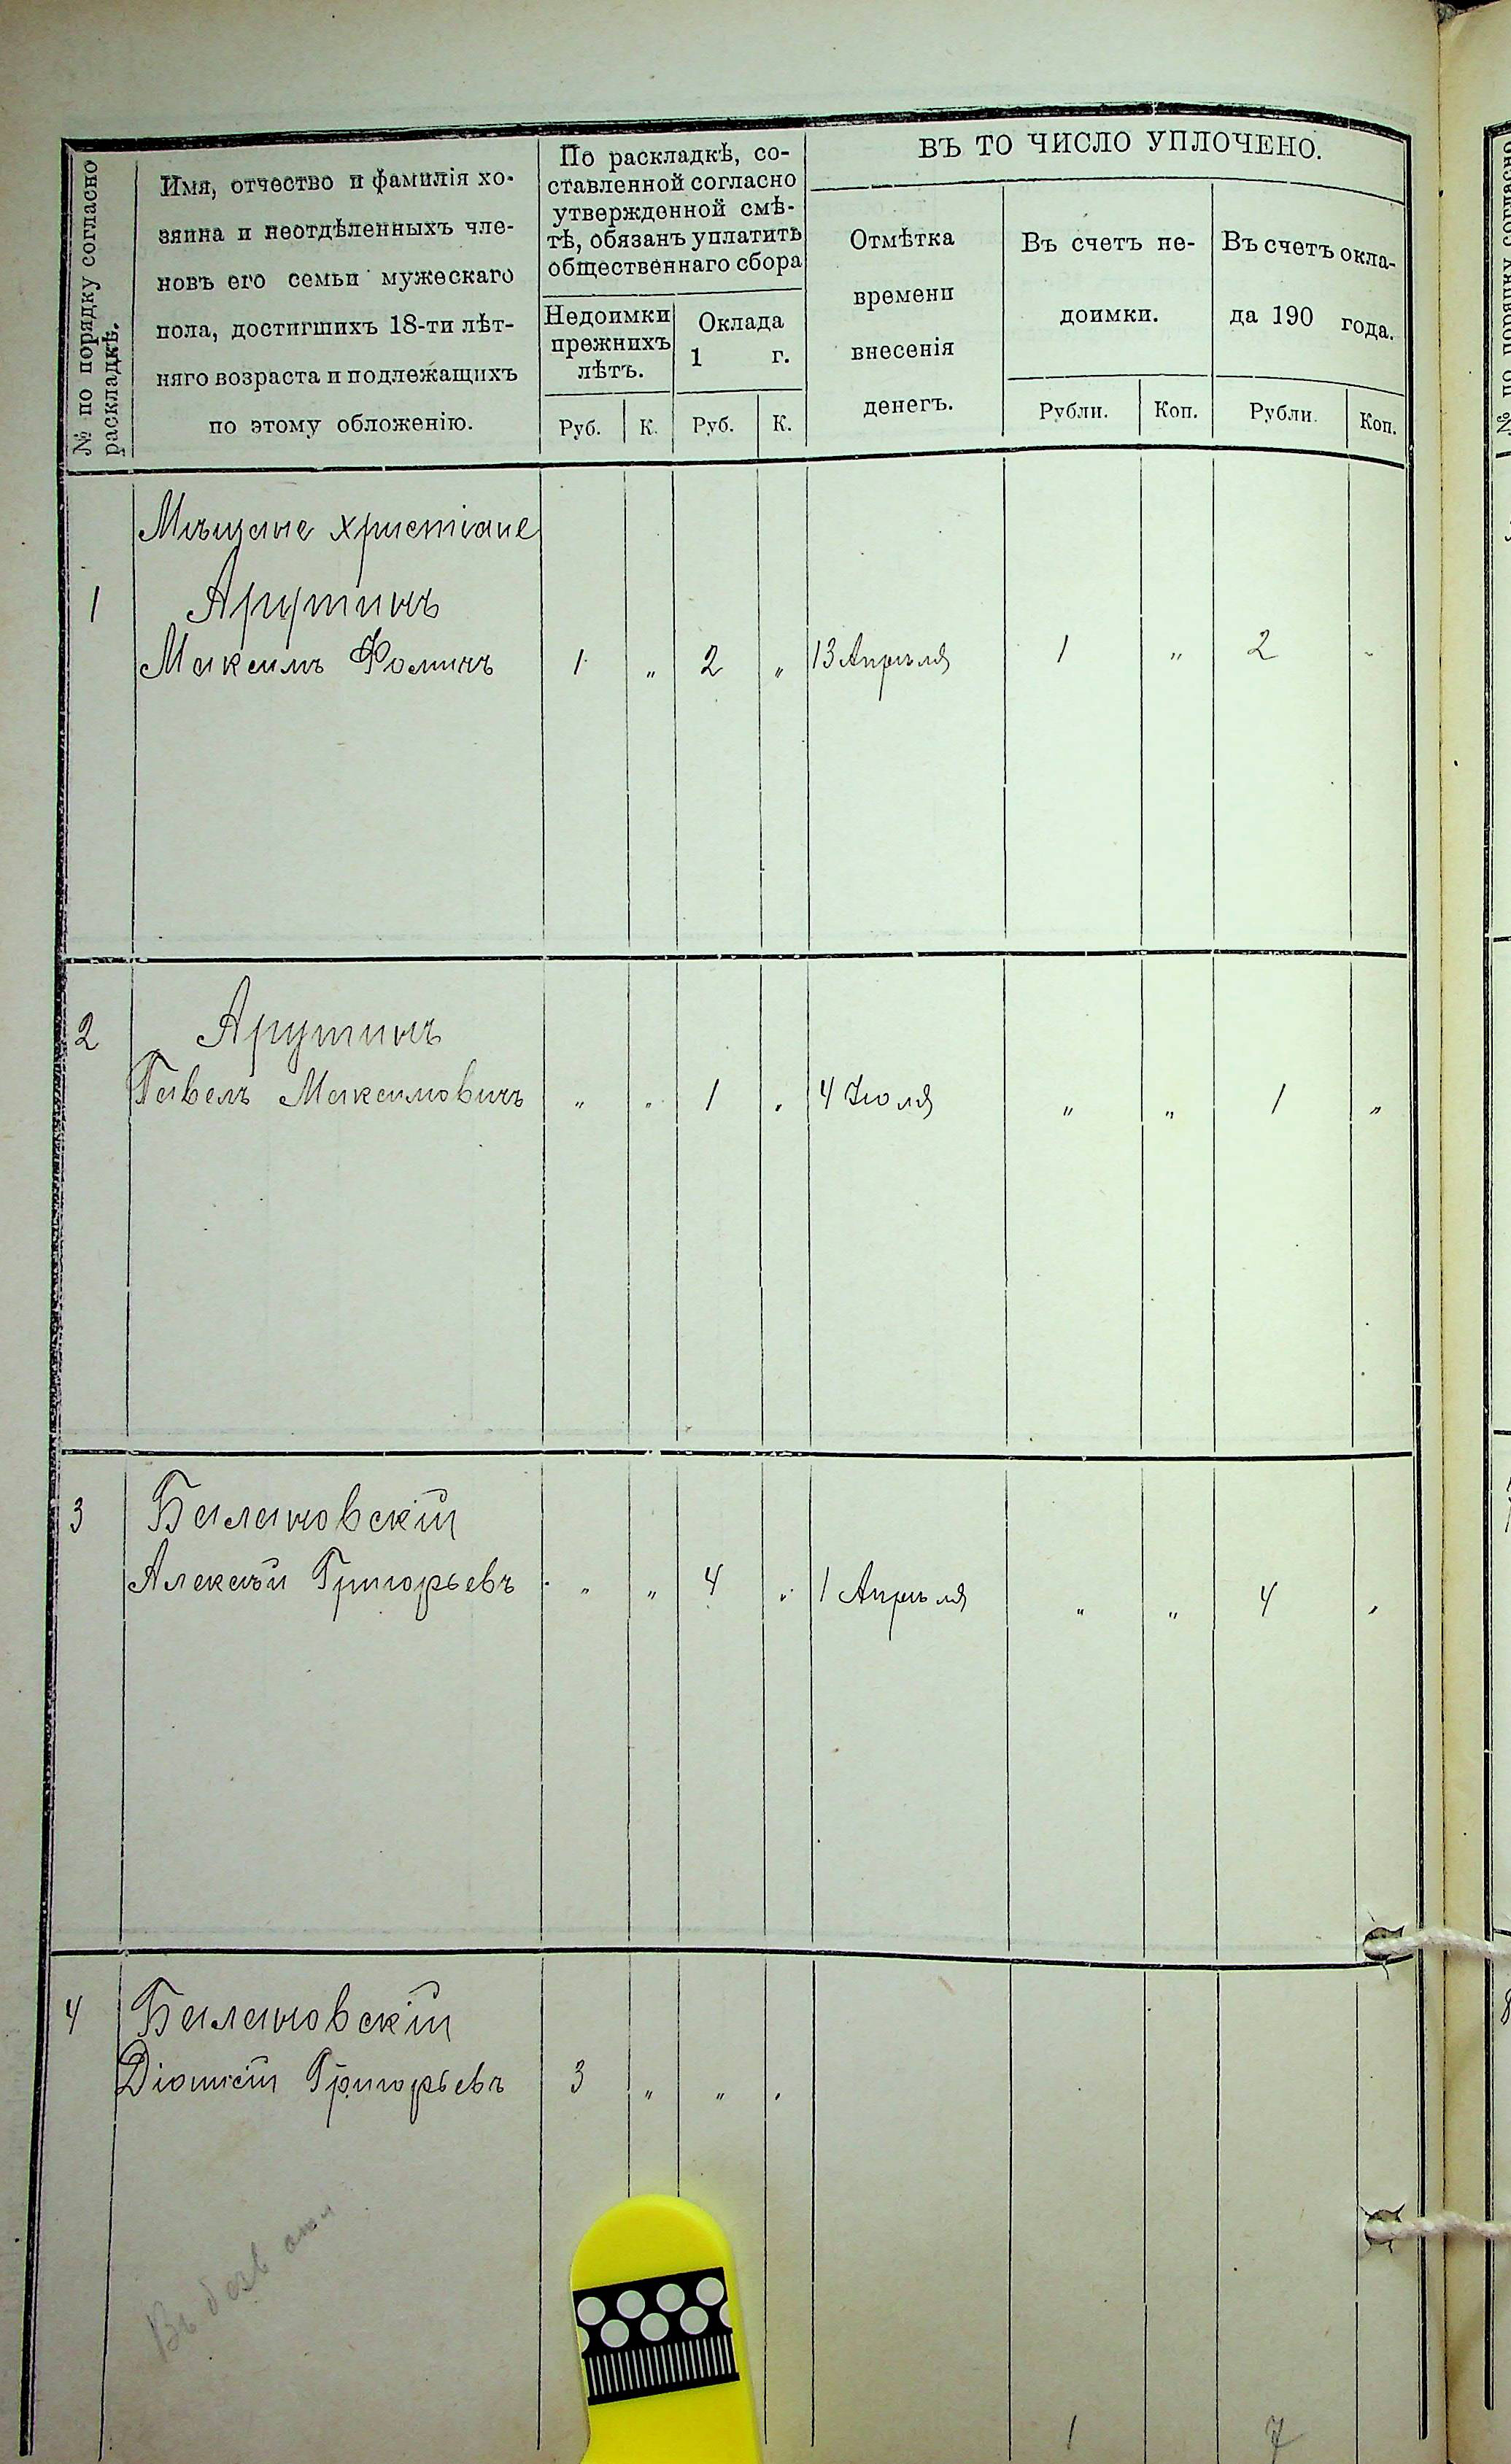 № по порядку согласно
раскладкѣ.
Имя, отчество и фамилія хо-
зяина и неотдѣленныхъ чле-
новъ его семьи мужескаго
пола, достигшихъ 18-ти лѣт-
няго возраста и подлежащихъ
по этому обложенію.
По раскладкѣ, со-
ставленной согласно
утвержденной смѣ-
тѣ, обязанъ уплатить
общественнаго сбора
Недоимки
прежнихъ
лѣтъ.
Оклада
1 г.
Руб. К. Руб. К.
ВЪ ТО ЧИСЛО УПЛОЧЕНО.
Отмѣтка
времени
внесенія
денегъ.
Въ счетъ не-
доимки.
Въ счетъ окла-
да 190 года.
Рубли. Коп. Рубли. Коп.
Мѣщане христіане
1 Арутинъ
Максимъ Фоминъ 1 „ 2 „ 13 Апрѣля 1 „ 2 „
2 Арутинъ
Павелъ Максимовичъ „ „ 1 „ 4 Іюля „ „ 1 „
3 Балановскій
Алексѣй Григорьевъ „ „ 4 „ 1 Апрѣля „ „ 4 „
4 Балановскій
Діонисій Григорьевъ 3 „ „ „
Въ безв
1 7